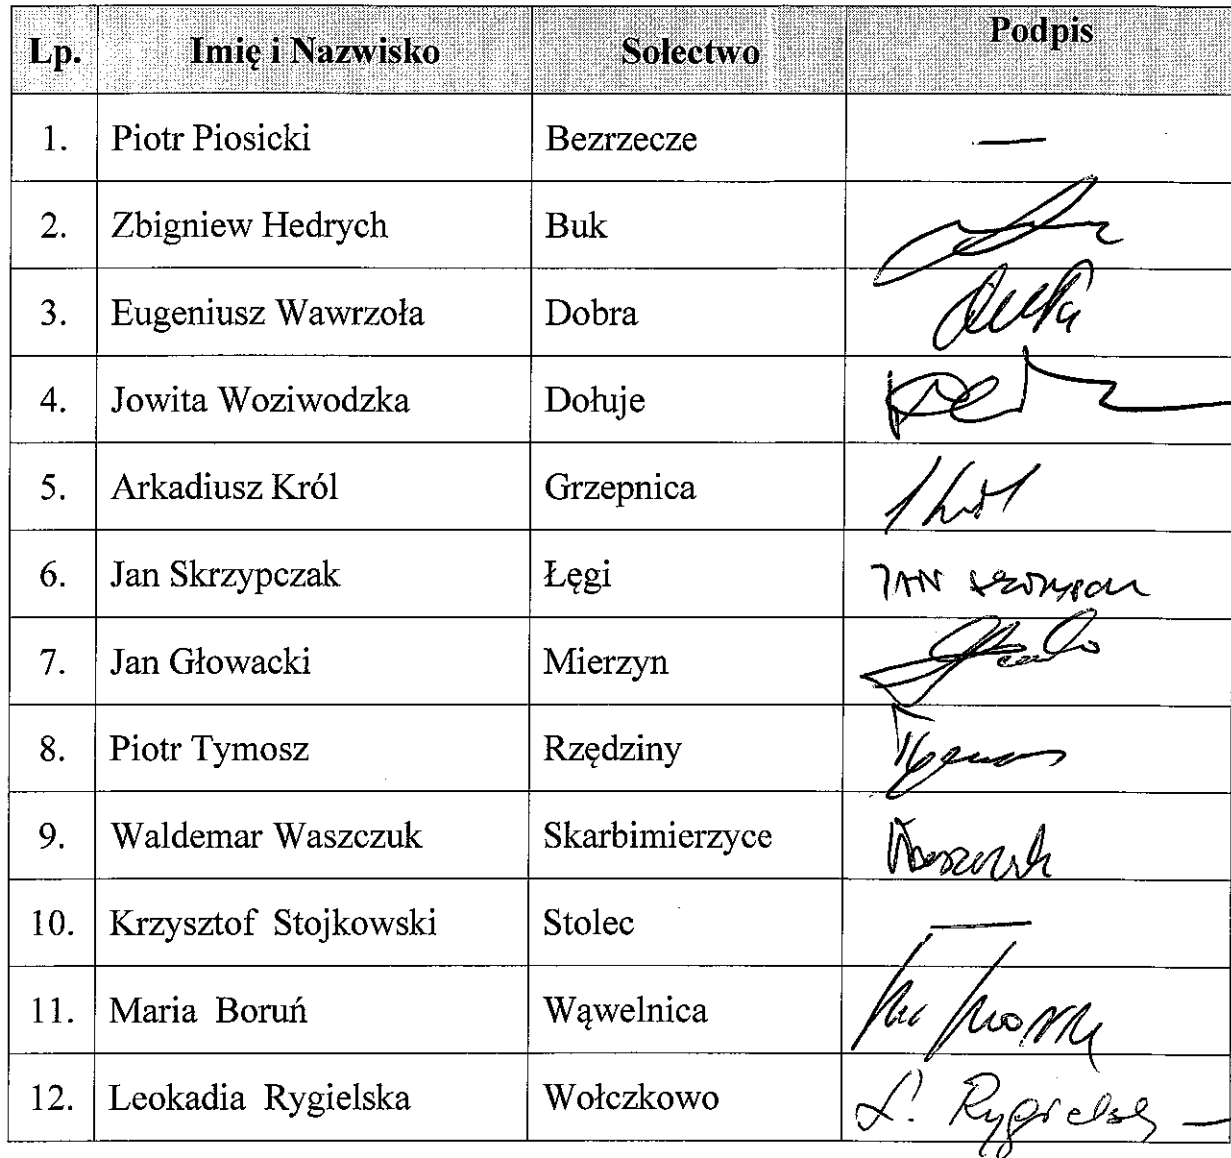 Lp. Imię i Nazwisko Sołectwo Podpis
1. Piotr Piosicki Bezrzecze —
2. Zbigniew Hedrych Buk
3. Eugeniusz Wawrzoła Dobra
4. Jowita Woziwodzka Dołuje
5. Arkadiusz Król Grzepnica
6. Jan Skrzypczak Łęgi JAN
7. Jan Głowacki Mierzyn
8. Piotr Tymosz Rzędziny
9. Waldemar Waszczuk Skarbimierzyce
10. Krzysztof Stojkowski Stolec —
11. Maria Boruń Wąwelnica
12. Leokadia Rygielska Wołczkowo L.